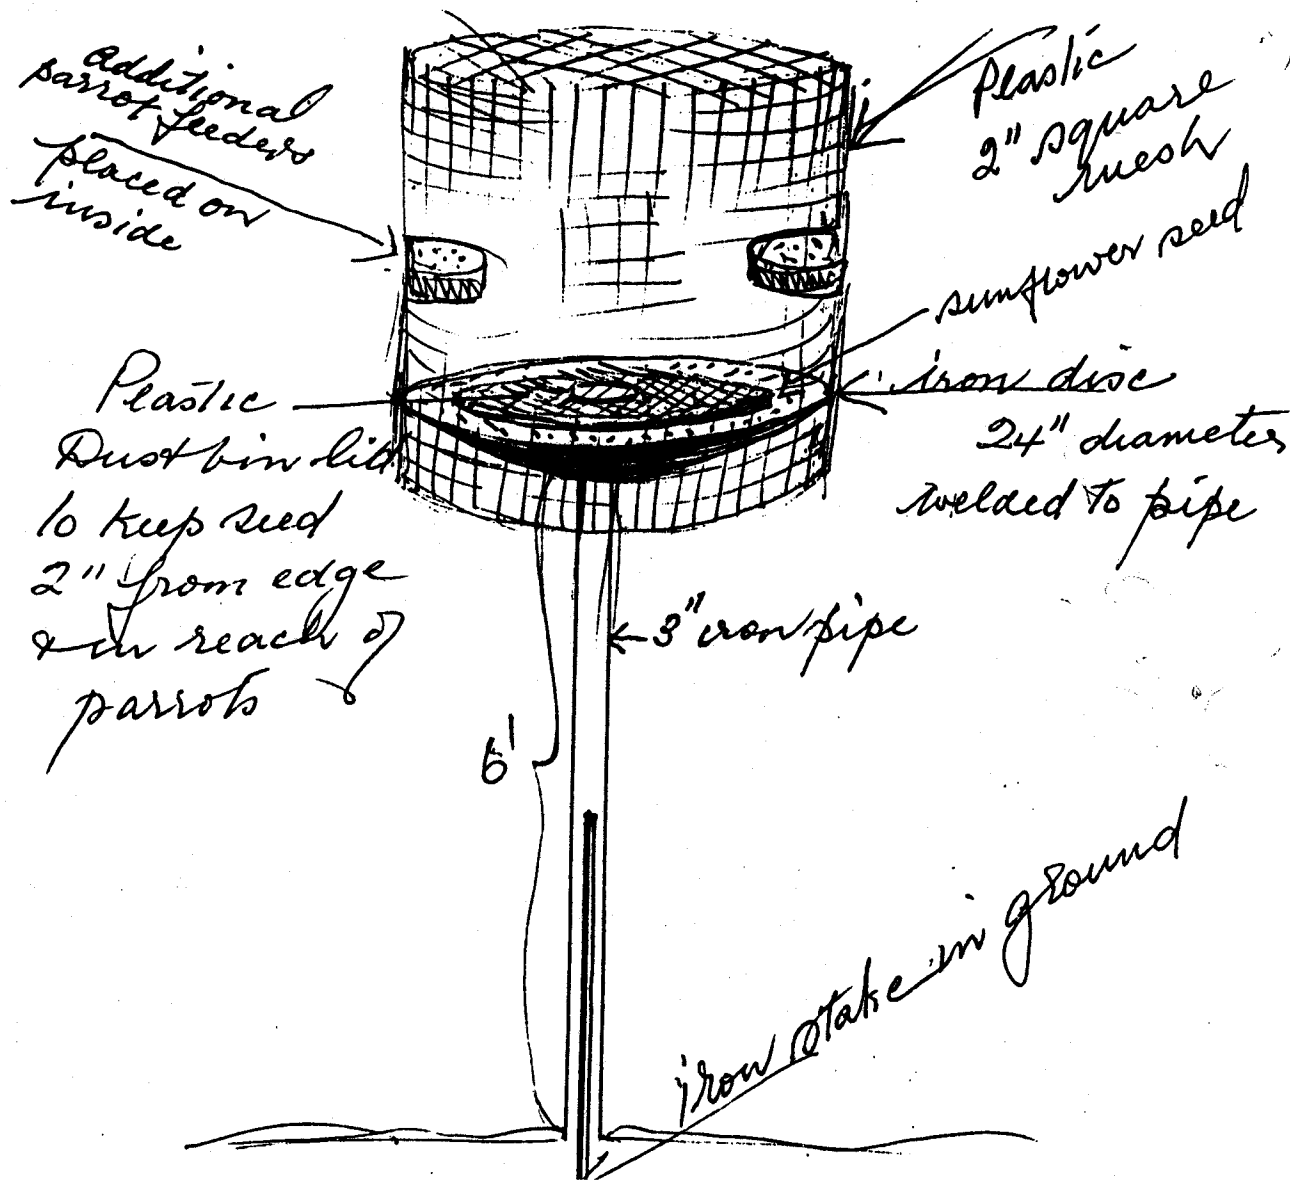 additional
parrot feeders
placed on
inside
Plastic
2" square
mesh
sunflower seed
iron disc
24" diameter
welded to pipe
Plastic
Dustbin lid
to keep seed
2" from edge
& in reach of
parrots
3" iron pipe
6'
iron stake in ground